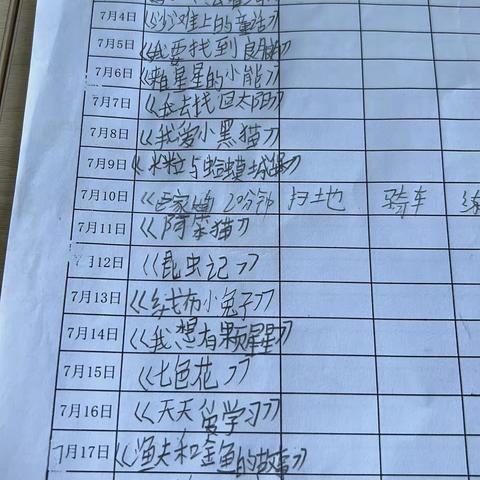 7月4日 《沙滩上的童话》
7月5日 《我要找到良朋》
7月6日 《粘星星的小熊》
7月7日 《我去找回太阳》
7月8日 《我爱小黑猫》
7月9日 《米粒与蛤蟆城堡》
7月10日 20分钟 扫地 骑车 练
7月11日 《阿笨猫》
7月12日 《昆虫记》
7月13日 《绒布小兔子》
7月14日 《我想有颗星星》
7月15日 《七色花》
7月16日 《天天爱学习》
7月17日 《渔夫和金鱼的故事》